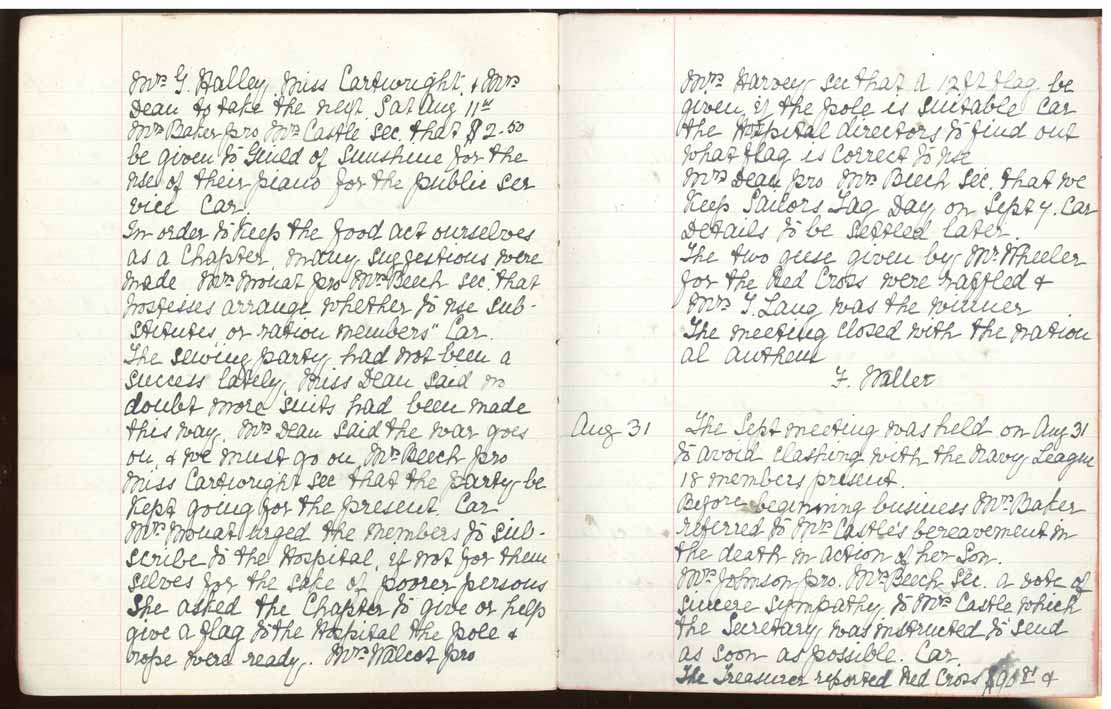 Mrs G. Halley, Miss Cartwright, & Mrs
Dean to take the next. Sat Aug 11th
Mrs Baker pro Mrs Castle sec. that $2-50
be given to Guild of Sunshine for the
use of their piano for the public ser
vice Car.
In order to keep the food act ourselves
as a Chapter, many suggestions were
made Mrs Mouat pro Mrs Beech sec. that
hostesses arrange whether to use sub-
stitutes, or ration members" Car.
The sewing party had not been a
success lately, Miss Dean said no
doubt more suits had been made
this way. Mrs Dean said the war goes
on, & we must go on, Mrs Beech pro
Miss Cartwright sec that the party be
kept going for the present. Car
Mrs Mouat urged the members to sub-
scribe to the Hospital, if not for them
selves for the sake of poorer persons
She asked the Chapter to give or help
give a flag to the Hospital the pole &
rope were ready. Mrs Walcot pro
Mrs Harvey sec that a 12 ft flag be
given if the pole is suitable Car
the Hospital directors to find out
what flag is correct to use
Mrs Dean pro Mrs Beech sec. that we
keep Sailors Tag Day on Sept 7. Car
Details to be settled later.
The two geese given by Mr Wheeler
for the Red Cross were raffled &
Mrs T. Lang was the winner
The meeting closed with the nation
al anthem
F. Waller
Aug 31 The Sept meeting was held on Aug 31
to avoid clashing with the Navy League
18 members present.
Before beginning business Mrs Baker
referred to Mrs Castle's bereavement in
the death in action of her son.
Mrs Johnson pro. Mrs Beech sec. a vote of
sincere sympathy to Mrs Castle which
the Secretary was instructed to send
as soon as possible. Car.
The Treasurer reported Red Cross $90 81 &